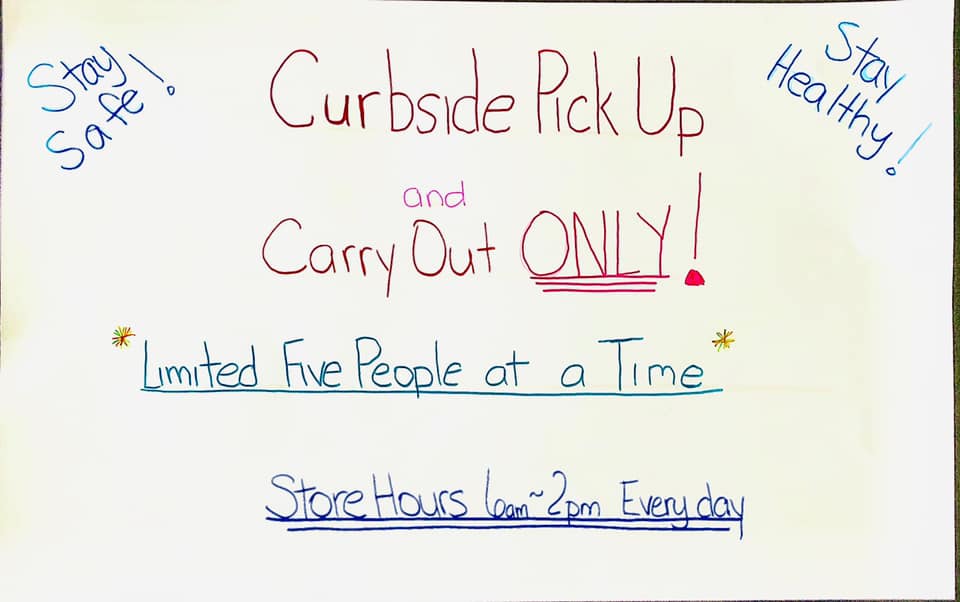 Stay
Safe!
Stay
Healthy!
Curbside Pick Up
and
Carry Out ONLY!
*Limited Five People at a Time*
Store Hours 6am~2pm Every day